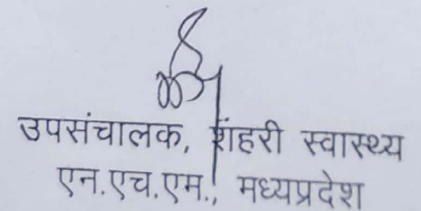 उपसंचालक, शहरी स्वास्थ्य
एन.एच.एम., मध्यप्रदेश